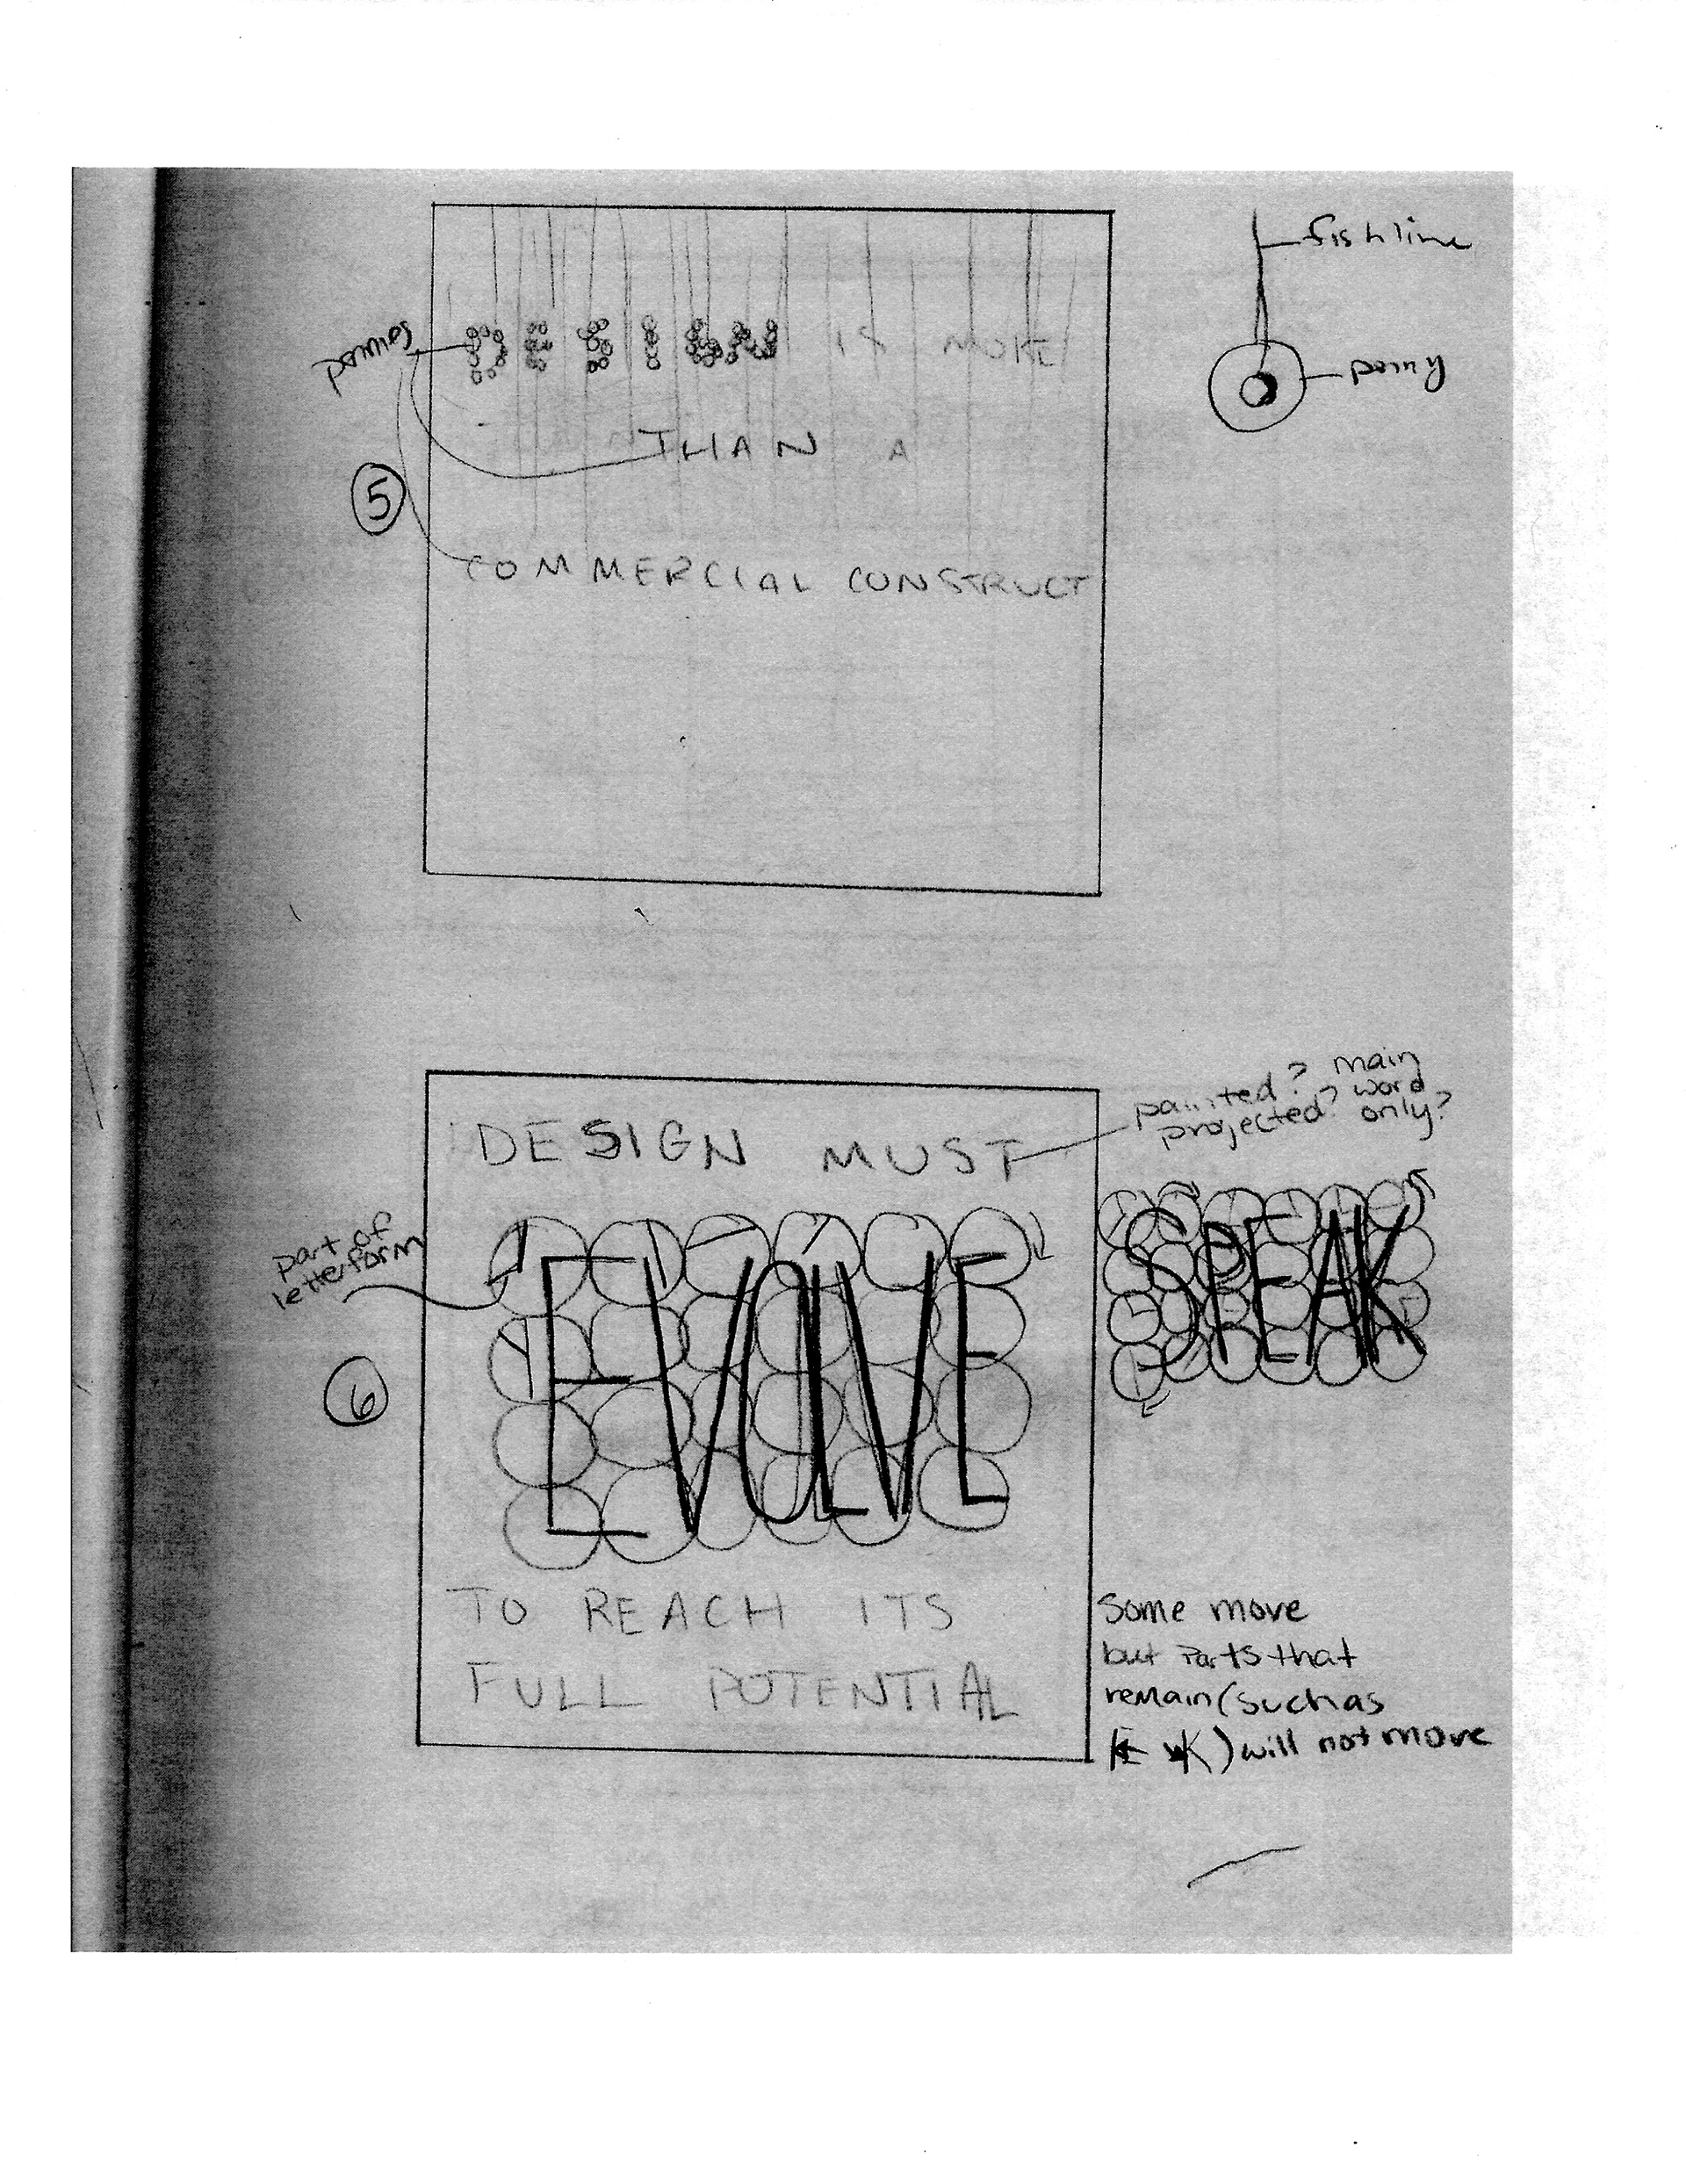 fishline
pennies
DESIGN IS MORE
penny
THAN A
5
COMMERCIAL CONSTRUCT
painted? main
projected? word
only?
DESIGN MUST
part of
letterform
EVOLVE
SPEAK
6
TO REACH ITS
FULL POTENTIAL
Some move
but parts that
remain (such as
E K) will not move